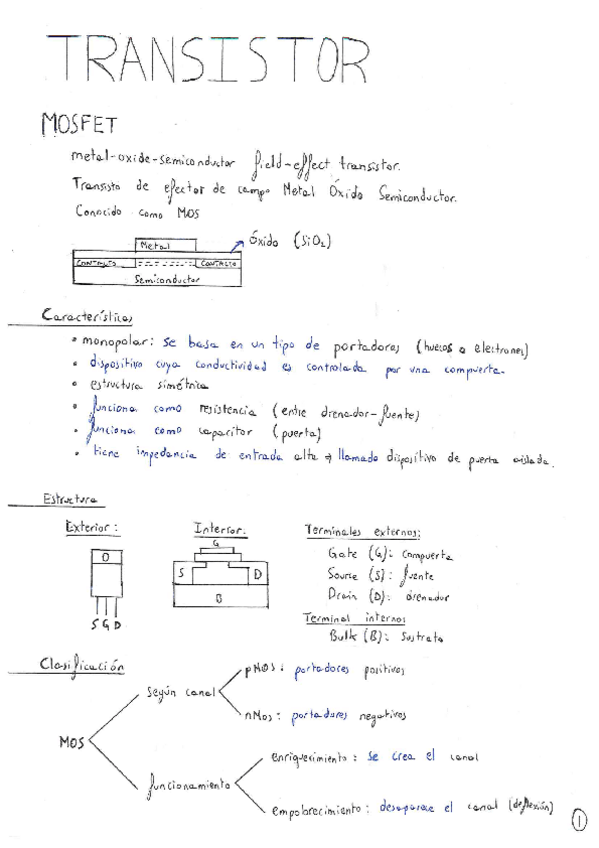 TRANSISTOR
MOSFET
metal-oxide-semiconductor field-effect transistor.
Transisto de efector de campo Metal Óxido Semiconductor.
Conocido como MOS
Metal
Óxido (SiO2)
CONTACTO
CONTACTO
Semiconductor
Características
• monopolar: se basa en un tipo de portadores (huecos o electrones)
• dispositivo cuya conductividad es controlada por una compuerta.
• estructura simétrica
• funciona como resistencia (entre drenador-fuente)
• funciona como capacitor (puerta)
• tiene impedancia de entrada alta → llamado dispositivo de puerta aislada.
Estructura
Exterior:
Interior:
Terminales externos:
G
Gate (G): compuerta
O
S
D
Source (S): fuente
B
Drain (D): drenador
S G D
Terminal interno:
Bulk (B): sustrato
Clasificación
pMOS: portadores positivos
según canal
nMos: portadores negativos
MOS
enriquecimiento: se crea el canal
funcionamiento
empobrecimiento: desaparece el canal
1